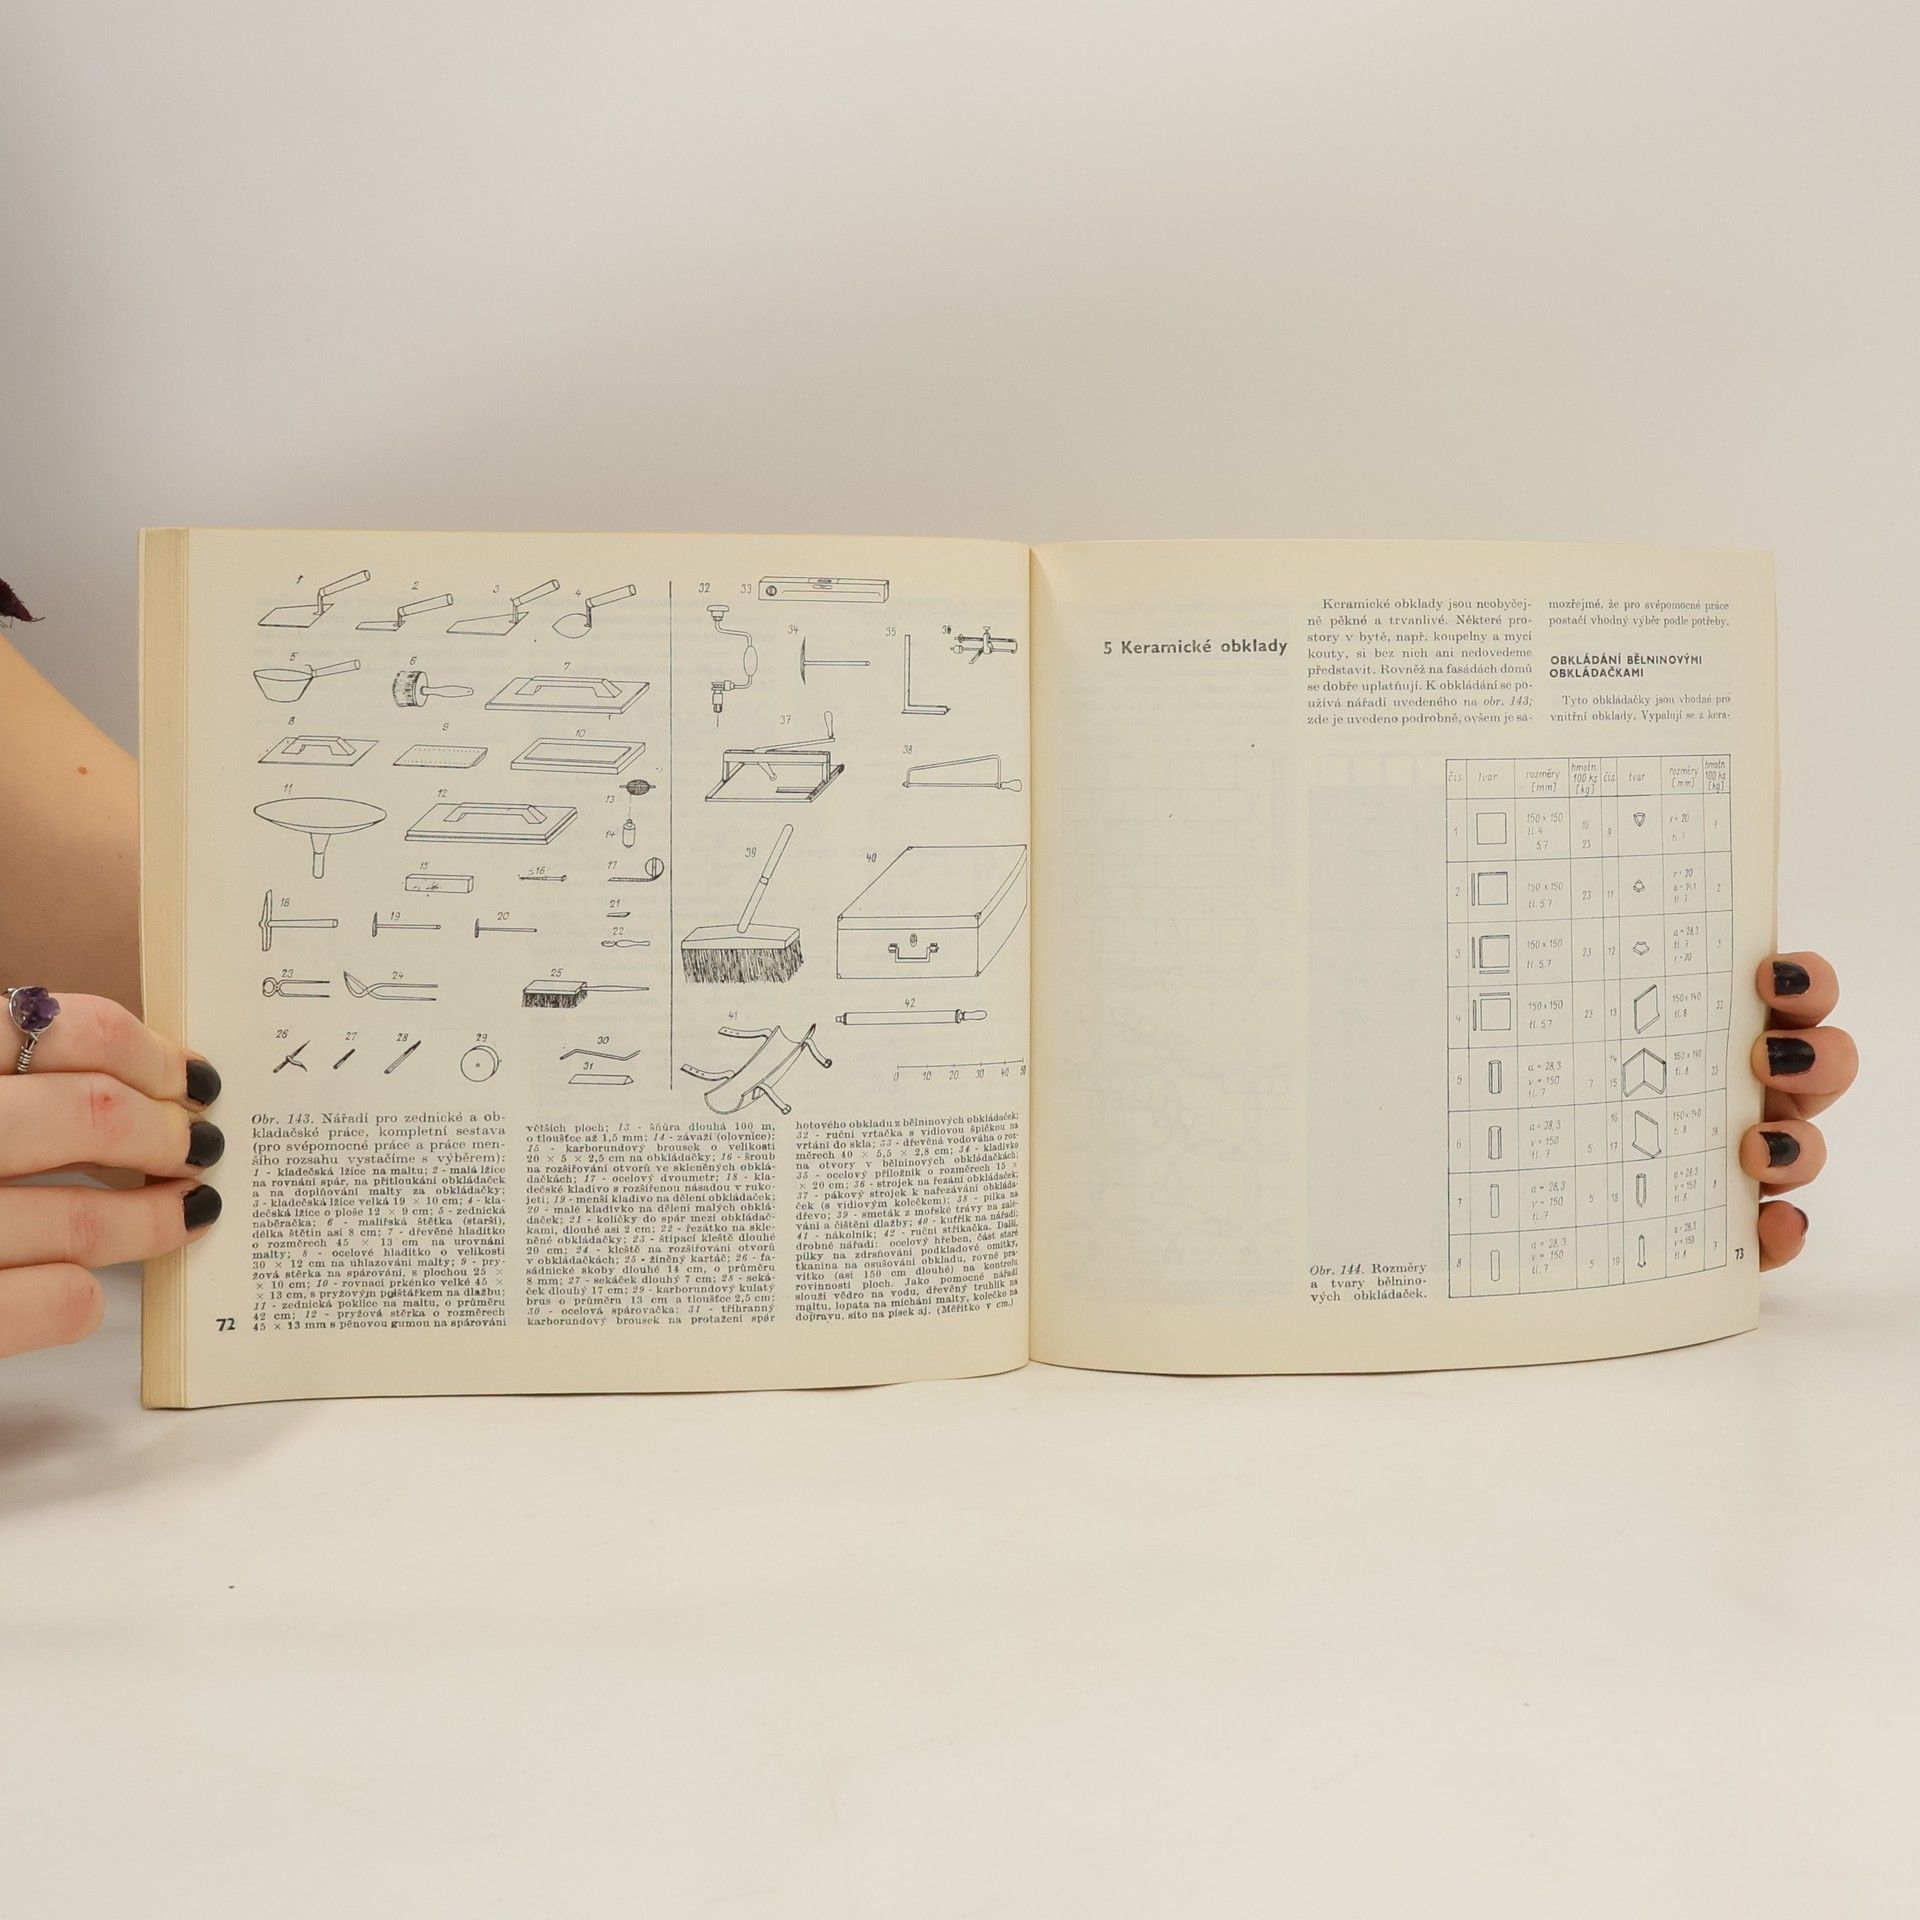 1
2
3
4
5
6
7
8
9
10
11
12
13
14
15
16
17
18
19
20
21
22
23
24
25
26
27
28
29
30
31
32
33
34
35
36
37
38
39
40
41
42
0 10 20 30 40 50
Obr. 143. Nářadí pro zednické a ob-
kladačské práce, kompletní sestava
(pro svépomocné práce a práce men-
šího rozsahu vystačíme s výběrem):
1 - kladečská lžíce na maltu; 2 - malá lžíce
na rovnání spár, na přitloukání obkládaček
a na doplňování malty za obkládačky;
3 - kladečská lžíce velká 19 × 10 cm; 4 - kla-
dečská lžíce o ploše 12 × 9 cm; 5 - zednická
naběračka; 6 - malířská štětka (starší),
délka štětin asi 8 cm; 7 - dřevěné hladítko
o rozměrech 45 × 13 cm na urovnání
malty; 8 - ocelové hladítko o velikosti
30 × 12 cm na úhlazování malty; 9 - pry-
žová stěrka na spárování, s plochou 25 ×
× 10 cm; 10 - rovnací prkénko velké 45 ×
× 13 cm, s pryžovým polštářkem na dlažbu;
11 - zednická poklice na maltu, o průměru
42 cm; 12 - pryžová stěrka o rozměrech
45 × 13 mm s pěnovou gumou na spárování
72
větších ploch; 13 - šňůra dlouhá 100 m,
o tloušťce až 1,5 mm; 14 - závaží (olovnice);
15 - karborundový brousek o velikosti
20 × 5 × 2,5 cm na obkládačky; 16 - šroub
na rozšiřování otvorů ve skleněných obklá-
dačkách; 17 - ocelový dvoumetr; 18 - kla-
dečské kladivo s rozšířenou násadou v ruko-
jeti; 19 - menší kladivo na dělení obkládaček;
20 - malé kladívko na dělení malých obklá-
daček; 21 - kolíčky do spár mezi obkládač-
kami, dlouhé asi 2 cm; 22 - řezátko na skle-
něné obkládačky; 23 - štípací kleště dlouhé
20 cm; 24 - kleště na rozšiřování otvorů
v obkládačkách; 25 - žíněný kartáč; 26 - fa-
sádnické skoby dlouhé 14 cm, o průměru
8 mm; 27 - sekáček dlouhý 7 cm; 28 - seká-
ček dlouhý 17 cm; 29 - karborundový kulatý
brus o průměru 13 cm a tloušťce 2,5 cm;
30 - ocelová spárovačka; 31 - tříhranný
karborundový brousek na protažení spár
hotového obkladu z bělninových obkládaček;
32 - ruční vrtačka s vidiovou špičkou na
vrtání do skla; 33 - dřevěná vodováha o roz-
měrech 40 × 5,5 × 2,8 cm; 34 - kladívko
na otvory v bělninových obkládačkách;
35 - ocelový příložník o rozměrech 15 ×
× 20 cm; 36 - strojek na řezání obkládaček;
37 - pákový strojek k nařezávání obkláda-
ček (s vidiovým kolečkem); 38 - pilka na
dřevo; 39 - smeták z mořské trávy na zalé-
vání a čištění dlažby; 40 - kufřík na nářadí;
41 - nákolník; 42 - ruční stříkačka. Další,
drobné nářadí: ocelový hřeben, část staré
pilky na zdrsňování podkladové omítky,
tkanina na osušování obkladu, rovné pra-
vítko (asi 150 cm dlouhé) na kontrolu
rovinnosti ploch. Jako pomocné nářadí
slouží vědro na vodu, dřevěný truhlík na
maltu, lopata na míchání malty, kolečko na
dopravu, síto na písek aj. (Měřítko v cm.)
5 Keramické obklady
Keramické obklady jsou neobyčej-
ně pěkné a trvanlivé. Některé pro-
story v bytě, např. koupelny a mycí
kouty, si bez nich ani nedovedeme
představit. Rovněž na fasádách domů
se dobře uplatňují. K obkládání se po-
užívá nářadí uvedeného na obr. 143;
zde je uvedeno podrobně, ovšem je sa-
mozřejmé, že pro svépomocné práce
postačí vhodný výběr podle potřeby.
OBKLÁDÁNÍ BĚLNINOVÝMI
OBKLÁDAČKAMI
Tyto obkládačky jsou vhodné pro
vnitřní obklady. Vypalují se z kera-
čís. tvar rozměry [mm] hmotn. 100 ks [kg] čís. tvar rozměry [mm] hmotn. 100 ks [kg]
1 150 x 150 tl. 4 5,7 16 23 9 r = 20 tl. 7
2 150 x 150 tl. 5,7 23 11 r = 20 tl. 7 2
3 150 x 150 tl. 5,7 23 12 a = 28,3 tl. 7 r = 20 3
4 150 x 150 tl. 5,7 23 13 150 x 140 tl. 8 33
5 a = 28,3 v = 150 tl. 7 7 14 15 150 x 140 tl. 8 33
6 a = 28,3 v = 150 tl. 7 5 16 17 150 x 140 tl. 8
7 a = 28,3 v = 150 tl. 7 5 18 a = 28,3 v = 150 tl. 8 8
8 a = 28,3 v = 150 tl. 7 5 19 a = 28,3 v = 150 tl. 8 7
Obr. 144. Rozměry
a tvary bělnino-
vých obkládaček.
73